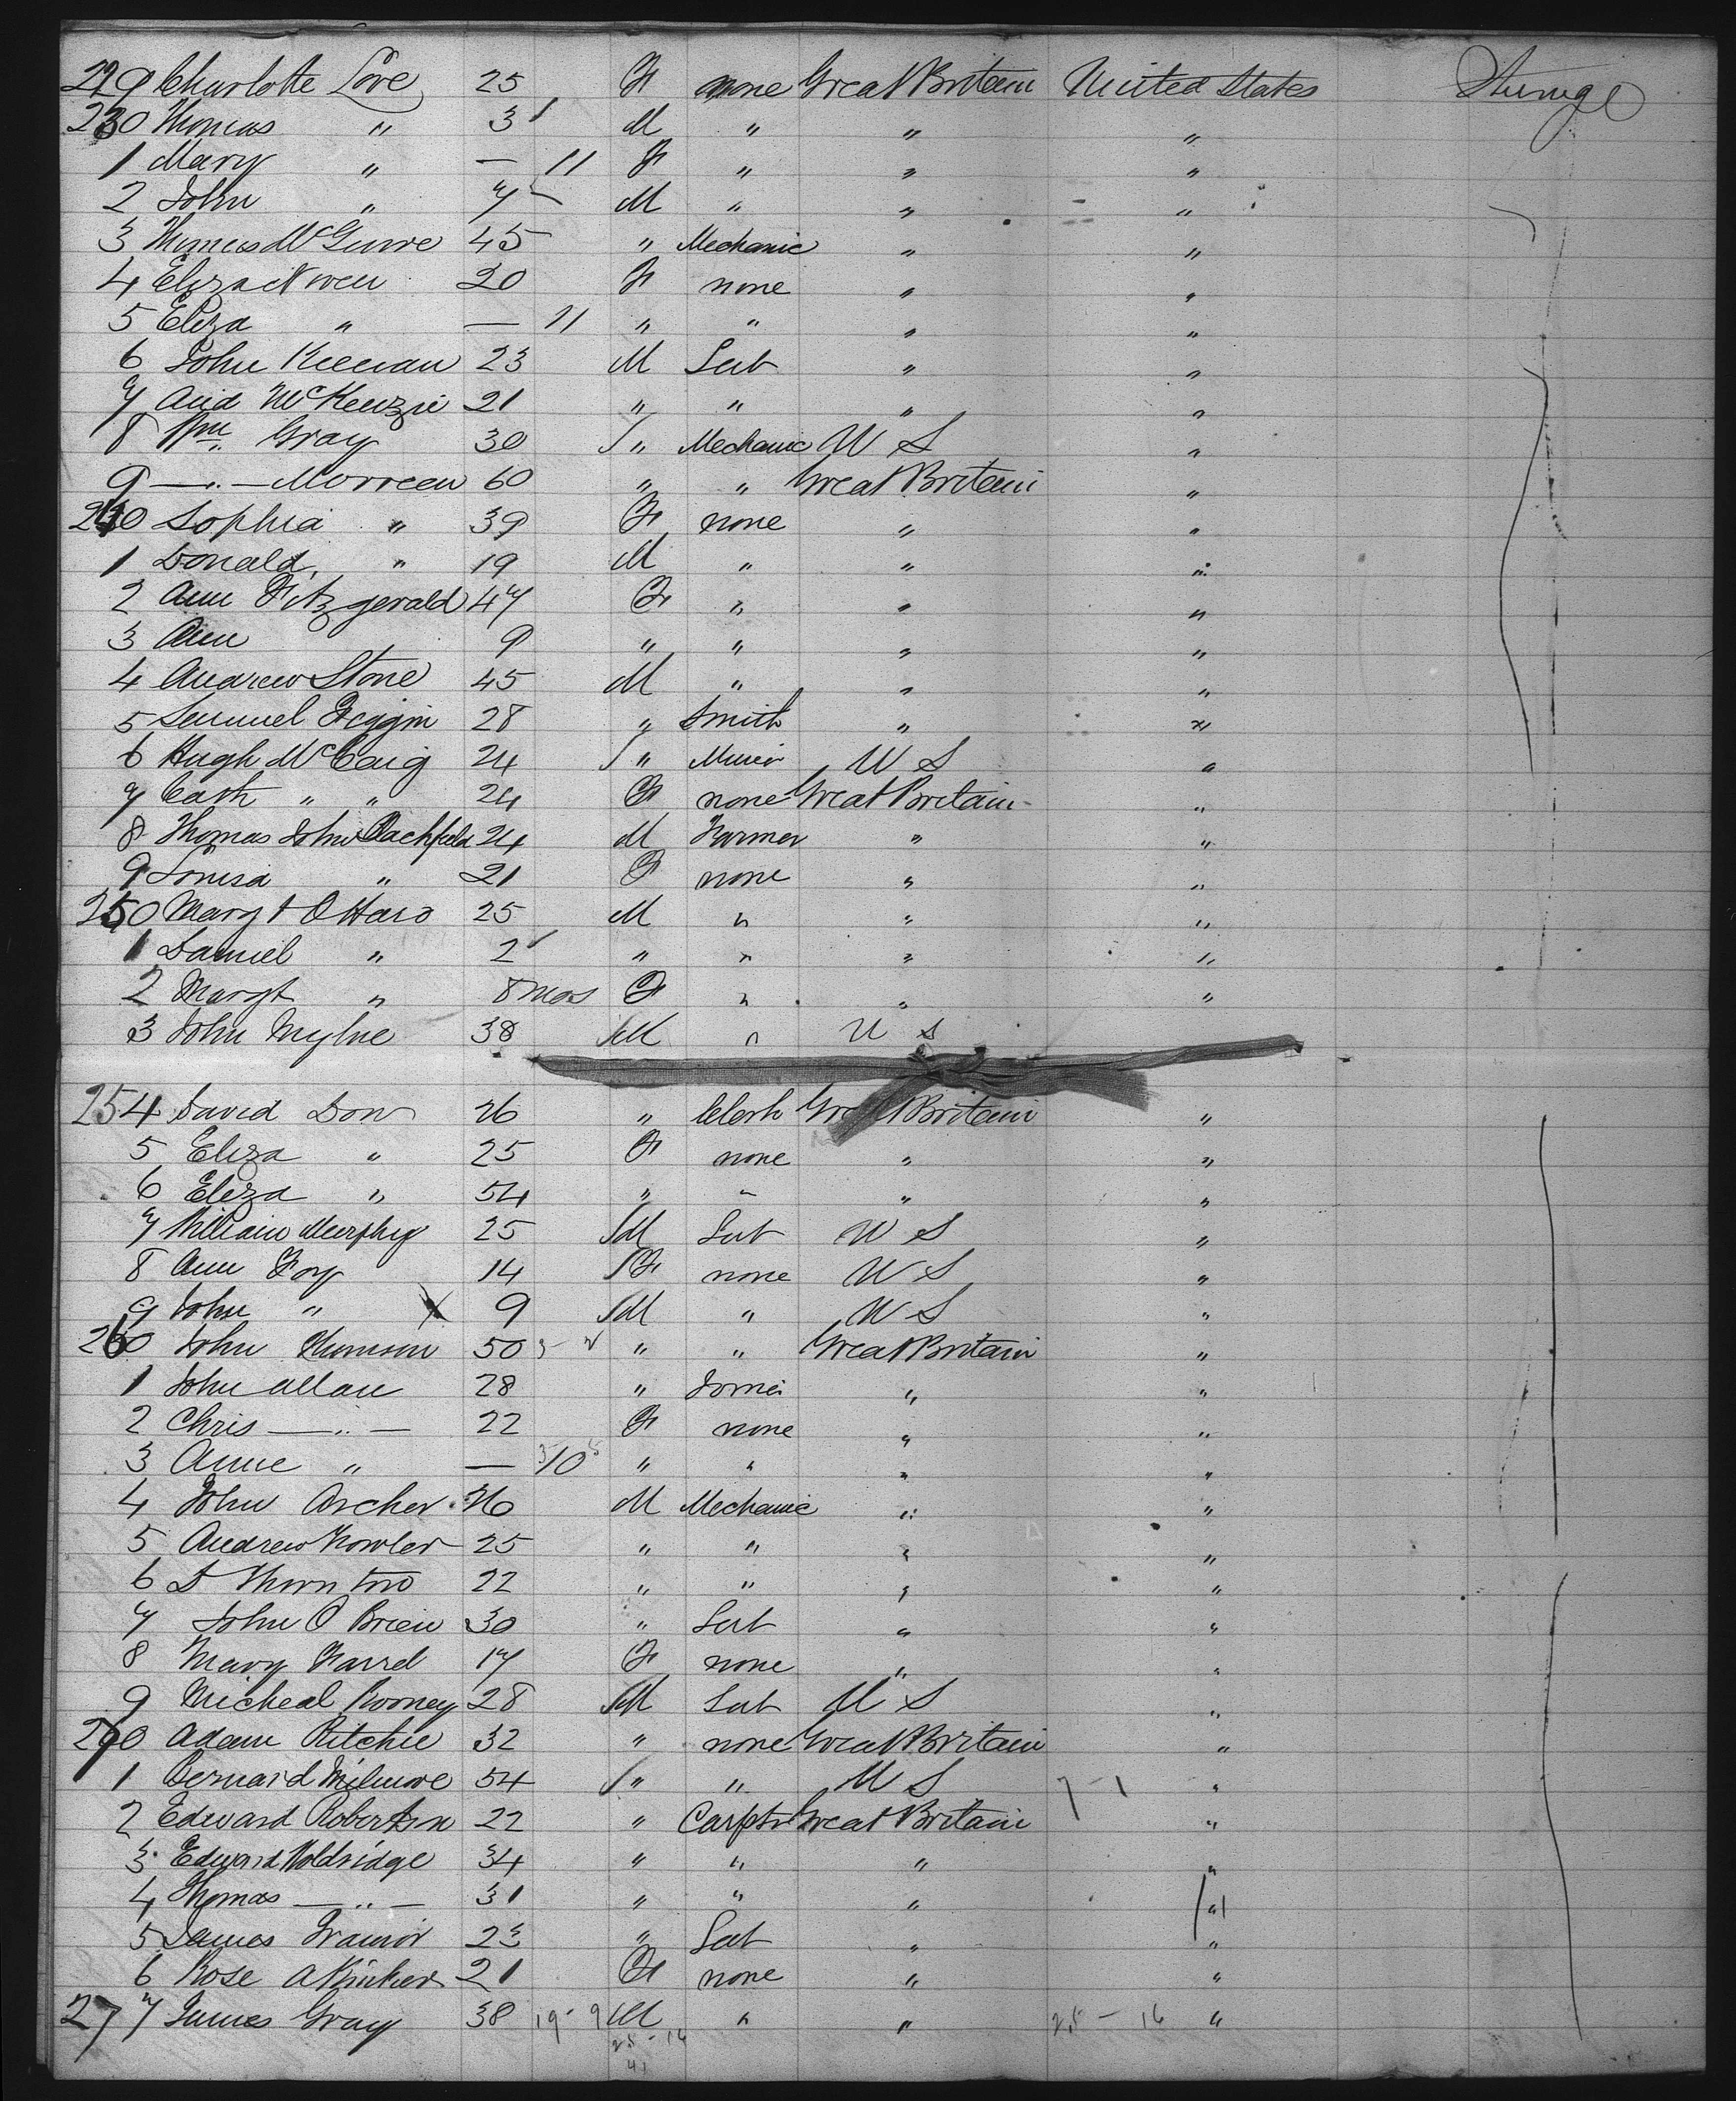 229 Charlotte Love 25 F none Great Britain United States Steerage
230 Thomas " 3 M " " "
1 Mary " — 11 F " " "
2 John " 7 M " " "
3 Thomas McGuire 45 " Mechanic " "
4 Eliza 20 F none " "
5 Eliza " — 11 " " " "
6 John Keenan 23 M Lab " "
7 And McKenzie 21 " " " "
8 Wm Gray 30 " Mechanic U S "
9 —"— Morreen 60 " " Great Britain "
240 Sophia " 39 F none " "
1 Donald " 19 M " " "
2 Ann Fitzgerald 47 F " " "
3 Ann 9 " " " "
4 Andrew Stone 45 M " " "
5 Samuel 28 " Smith " "
6 Hugh McCaig 24 " Miner U S "
7 Cath " " 24 F none Great Britain "
8 Thomas John 24 M Farmer " "
9 Louisa " 21 F none " "
250 Margt O Hara 25 M " " "
1 Daniel " 2 " " " "
2 Margt " 8 mos F " " "
3 John Mylne 38 M " U S
254 David Dow 26 " Clerk Great Britain "
5 Eliza " 25 F none " "
6 Eliza " 54 " " " "
7 William Murphy 25 M Lab U S "
8 Ann Foy 14 F none U S "
9 John " X 9 M " U S "
260 John Thomson 50 " " Great Britain "
1 John Allan 28 " " "
2 Chris —"— 22 F none " "
3 Anne " — 10 " " " "
4 John Archer 26 M Mechanic " "
5 Andrew Fowler 25 " " " "
6 D Thornton 22 " " " "
7 John O Brien 30 " Lab " "
8 Mary Farrel 17 F none " "
9 Micheal Rooney 28 M Lab U S "
270 Adam Ritchie 32 " none Great Britain "
1 Bernard Milmore 54 " " U S "
2 Edward Robertson 22 " Carptr Great Britain "
3 Edward Holdridge 34 " " " "
4 Thomas —"— 31 " " " "
5 James Trainor 23 " Lab " "
6 Rose 21 F none " "
277 James Gray 38 19 - 9 M " " 25 - 16 "
25 - 16
41